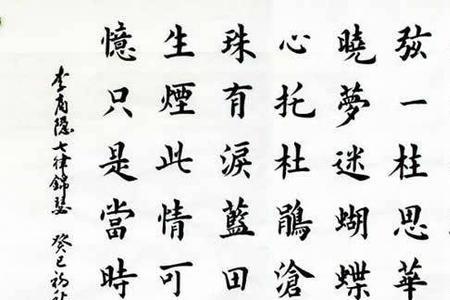 弦一柱思華
曉夢迷蝴蝶
心托杜鵑滄
珠有淚藍田
生煙此情可
憶只是當時
李商隐七律錦瑟 癸巳初